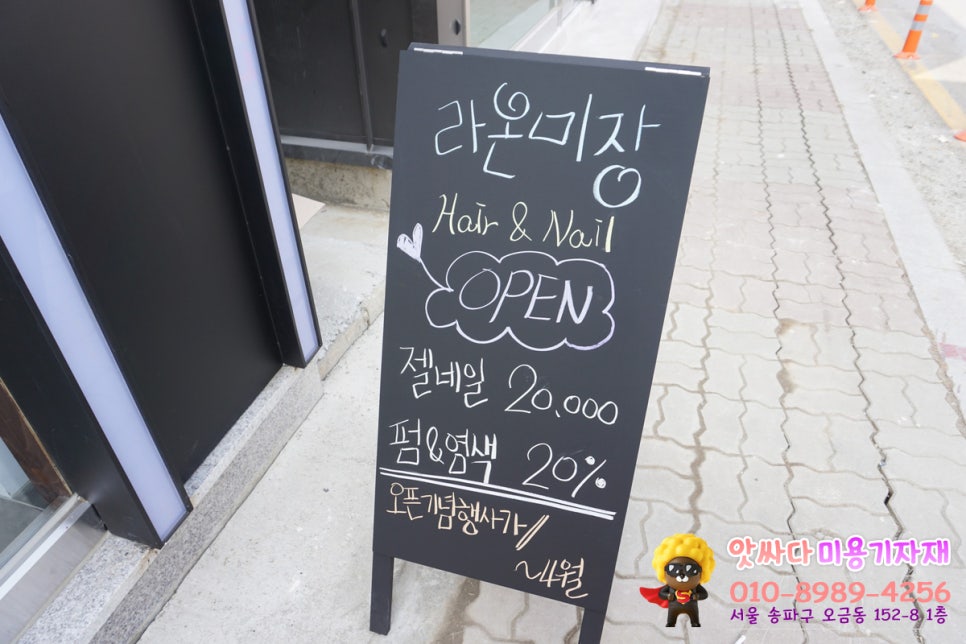 라온미장
Hair & Nail
OPEN
젤네일 20.000
펌&염색 20%
오픈기념행사가
~4월
앗싸다 미용기자재
010-8989-4256
서울 송파구 오금동 152-8 1층